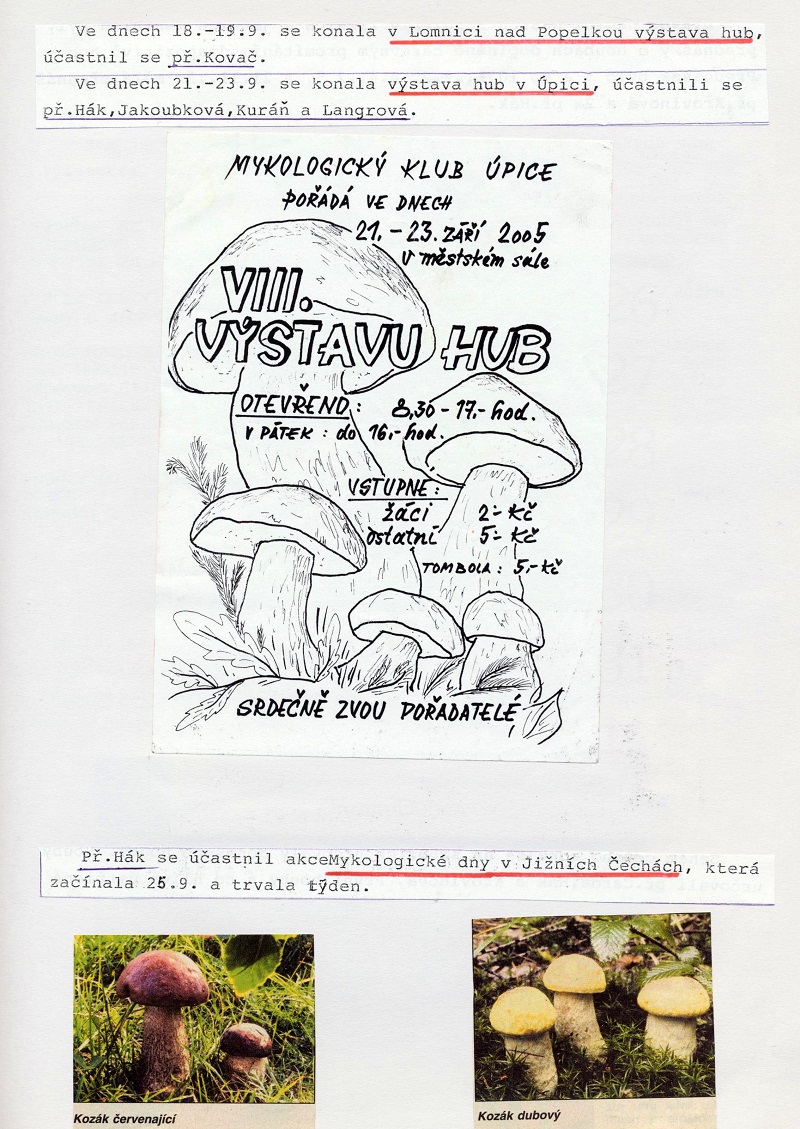 Ve dnech 18.-19.9. se konala v Lomnici nad Popelkou výstava hub,
účastnil se př.Kovač.
Ve dnech 21.-23.9. se konala výstava hub v Úpici, účastnili se
př.Hák,Jakoubková,Kuráň a Langrová.
MYKOLOGICKÝ KLUB ÚPICE
POŘÁDÁ VE DNECH
21.-23. ZÁŘÍ 2005
v městském sále
VIII.
VÝSTAVU HUB
OTEVŘENO: 8,30-17,-hod.
V PÁTEK: do 16,-hod.
VSTUPNÉ:
žáci 2-Kč
ostatní 5-Kč
TOMBOLA: 5,-Kč
SRDEČNĚ ZVOU POŘADATELÉ
Př.Hák se účastnil akceMykologické dny v Jižních Čechách, která
začínala 25.9. a trvala týden.
Kozák červenající
Kozák dubový